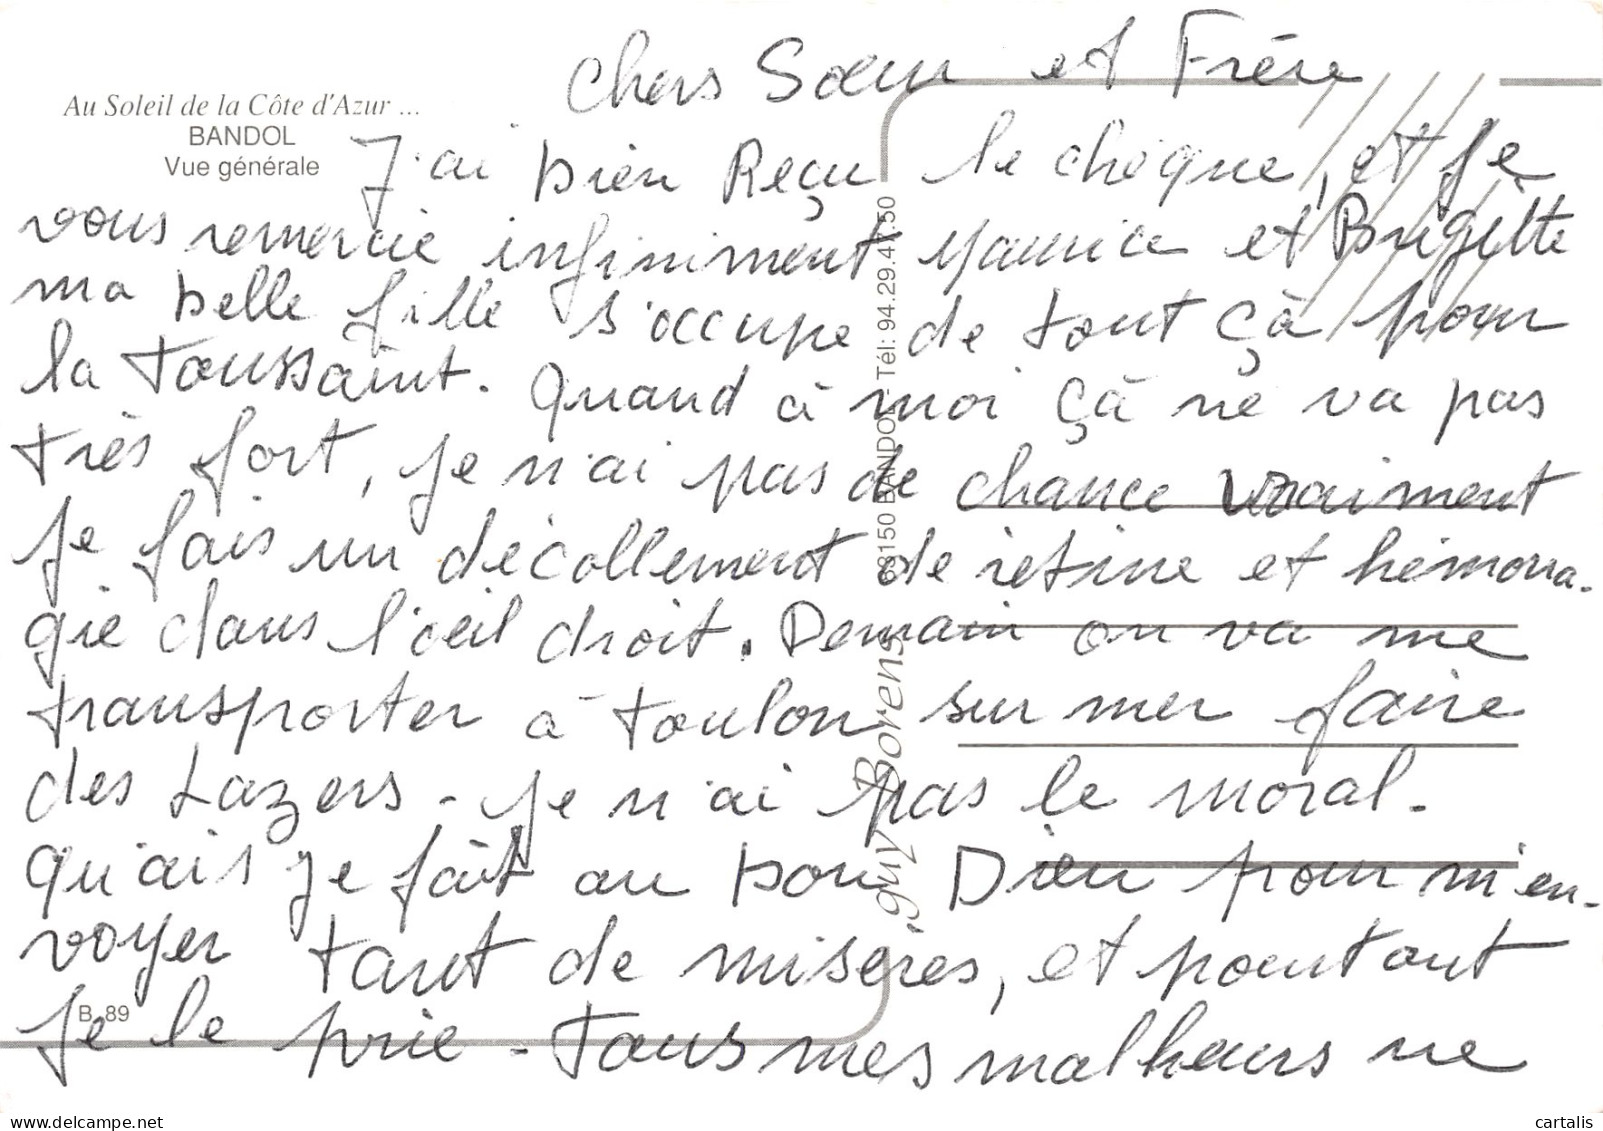 Chers Sœur et Frère
Au Soleil de la Côte d'Azur ...
BANDOL
Vue générale
J'ai bien Reçu le chèque, et je
vous remercie infiniment Maurice et Brigitte
ma belle fille s'occupe de tout çà pour
la Toussaint. Quand à moi çà ne va pas
très fort, je n'ai pas de chance vraiment
je fais un décollement de rétine et hémorra-
gie dans l'œil droit. Demain on va me
transporter à Toulon sur mer faire
des Lazers - je n'ai pas le moral.
qu'ais je fait au bon Dieu pour m'en-
voyer tant de misères, et pourtant
je le prie - Tous mes malheurs ne
B. 89
guy Borens 83150 BANDOL - Tél: 94.29.41.50
delcampe.net
cartalis